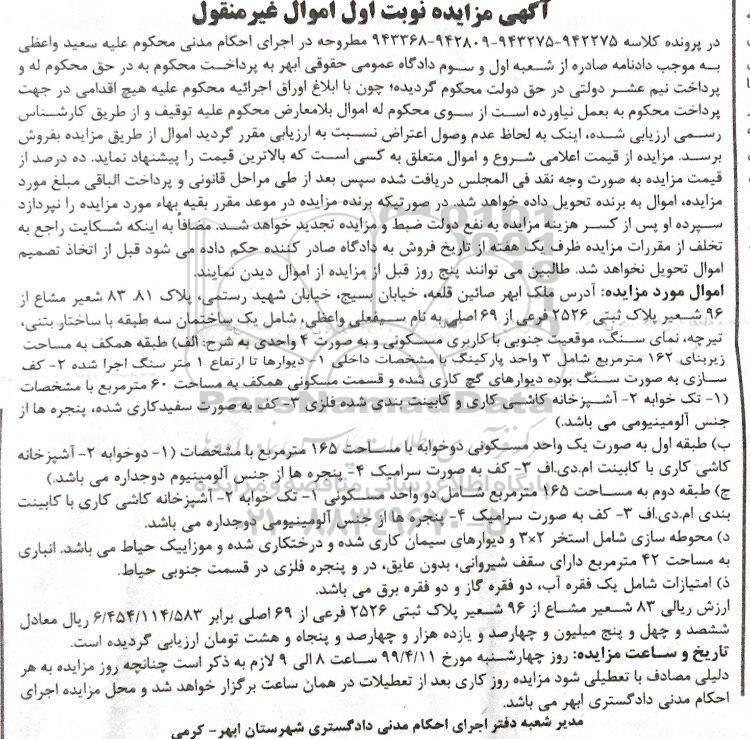 آگهی مزایده نوبت اول اموال غیرمنقول
در پرونده کلاسه ۹۴۲۲۷۵-۹۴۳۲۷۵-۹۴۲۸۰۹-۹۴۳۳۶۸ مطروحه در اجرای احکام مدنی محکوم علیه سعید واعظی
به موجب دادنامه صادره از شعبه اول و سوم دادگاه عمومی حقوقی ابهر به پرداخت محکوم به در حق محکوم له و
پرداخت نیم عشر دولتی در حق دولت محکوم گردیده؛ چون با ابلاغ اوراق اجرائیه محکوم علیه هیچ اقدامی در جهت
پرداخت محکوم به بعمل نیاورده است از سوی محکوم له اموال بلامعارض محکوم علیه توقیف و از طریق کارشناس
رسمی ارزیابی شده، اینک به لحاظ عدم وصول اعتراض نسبت به ارزیابی مقرر گردید اموال از طریق مزایده بفروش
برسد. مزایده از قیمت اعلامی شروع و اموال متعلق به کسی است که بالاترین قیمت را پیشنهاد نماید. ده درصد از
قیمت مزایده به صورت وجه نقد فی المجلس دریافت شده سپس بعد از طی مراحل قانونی و پرداخت الباقی مبلغ مورد
مزایده، اموال به برنده تحویل داده خواهد شد. در صورتیکه برنده مزایده در موعد مقرر بقیه بهاء مورد مزایده را نپردازد
سپرده او پس از کسر هزینه مزایده به نفع دولت ضبط و مزایده تجدید خواهد شد. مضافاً به اینکه شکایت راجع به
تخلف از مقررات مزایده ظرف یک هفته از تاریخ فروش به دادگاه صادر کننده حکم داده می شود قبل از اتخاذ تصمیم
اموال تحویل نخواهد شد. طالبین می توانند پنج روز قبل از مزایده از اموال دیدن نمایند.
اموال مورد مزایده: آدرس ملک ابهر صائین قلعه، خیابان بسیج، خیابان شهید رستمی، پلاک ۸۱. ۸۳ شعیر مشاع از
۹۶ شعیر پلاک ثبتی ۲۵۲۶ فرعی از ۶۹ اصلی به نام سیفعلی واعظی، شامل یک ساختمان سه طبقه با ساختار بتنی،
تیرچه، نمای سنگ، موقعیت جنوبی با کاربری مسکونی و به صورت ۴ واحدی به شرح: الف) طبقه همکف به مساحت
زیربنای ۱۶۲ مترمربع شامل ۳ واحد پارکینگ با مشخصات داخلی ۱- دیوارها تا ارتفاع ۱ متر سنگ اجرا شده ۲- کف
سازی به صورت سنگ بوده دیوارهای گچ کاری شده و قسمت مسکونی همکف به مساحت ۶۰ مترمربع با مشخصات
(۱- تک خوابه ۲- آشپزخانه کاشی کاری و کابینت بندی شده فلزی ۳- کف به صورت سفیدکاری شده، پنجره ها از
جنس آلومینیومی می باشد.)
ب) طبقه اول به صورت یک واحد مسکونی دوخوابه با مساحت ۱۶۵ مترمربع با مشخصات (۱- دوخوابه ۲- آشپزخانه
کاشی کاری با کابینت ام.دی.اف ۳- کف به صورت سرامیک ۴- پنجره ها از جنس آلومینیوم دوجداره می باشد.)
ج) طبقه دوم به مساحت ۱۶۵ مترمربع شامل دو واحد مسکونی ۱- تک خوابه ۲- آشپزخانه کاشی کاری با کابینت
بندی ام.دی.اف ۳- کف به صورت سرامیک ۴- پنجره ها از جنس آلومینیومی دوجداره می باشد.
د) محوطه سازی شامل استخر ۲×۳ و دیوارهای سیمان کاری شده و درختکاری شده و موزاییک حیاط می باشد. انباری
به مساحت ۴۲ مترمربع دارای سقف شیروانی، بدون عایق، در و پنجره فلزی در قسمت جنوبی حیاط.
ذ) امتیازات شامل یک فقره آب، دو فقره گاز و دو فقره برق می باشد.
ارزش ریالی ۸۳ شعیر مشاع از ۹۶ شعیر پلاک ثبتی ۲۵۲۶ فرعی از ۶۹ اصلی برابر ۶/۴۵۴/۱۱۴/۵۸۳ ریال معادل
ششصد و چهل و پنج میلیون و چهارصد و یازده هزار و چهارصد و پنجاه و هشت تومان ارزیابی گردیده است.
تاریخ و ساعت مزایده: روز چهارشنبه مورخ ۹۹/۴/۱۱ ساعت ۸ الی ۹ لازم به ذکر است چنانچه روز مزایده به هر
دلیلی مصادف با تعطیلی شود مزایده روز کاری بعد از تعطیلات در همان ساعت برگزار خواهد شد و محل مزایده اجرای
احکام مدنی دادگستری ابهر می باشد.
مدیر شعبه دفتر اجرای احکام مدنی دادگستری شهرستان ابهر- کرمی
ParsNamadData
پایگاه اطلاع رسانی مناقصه و مزایده